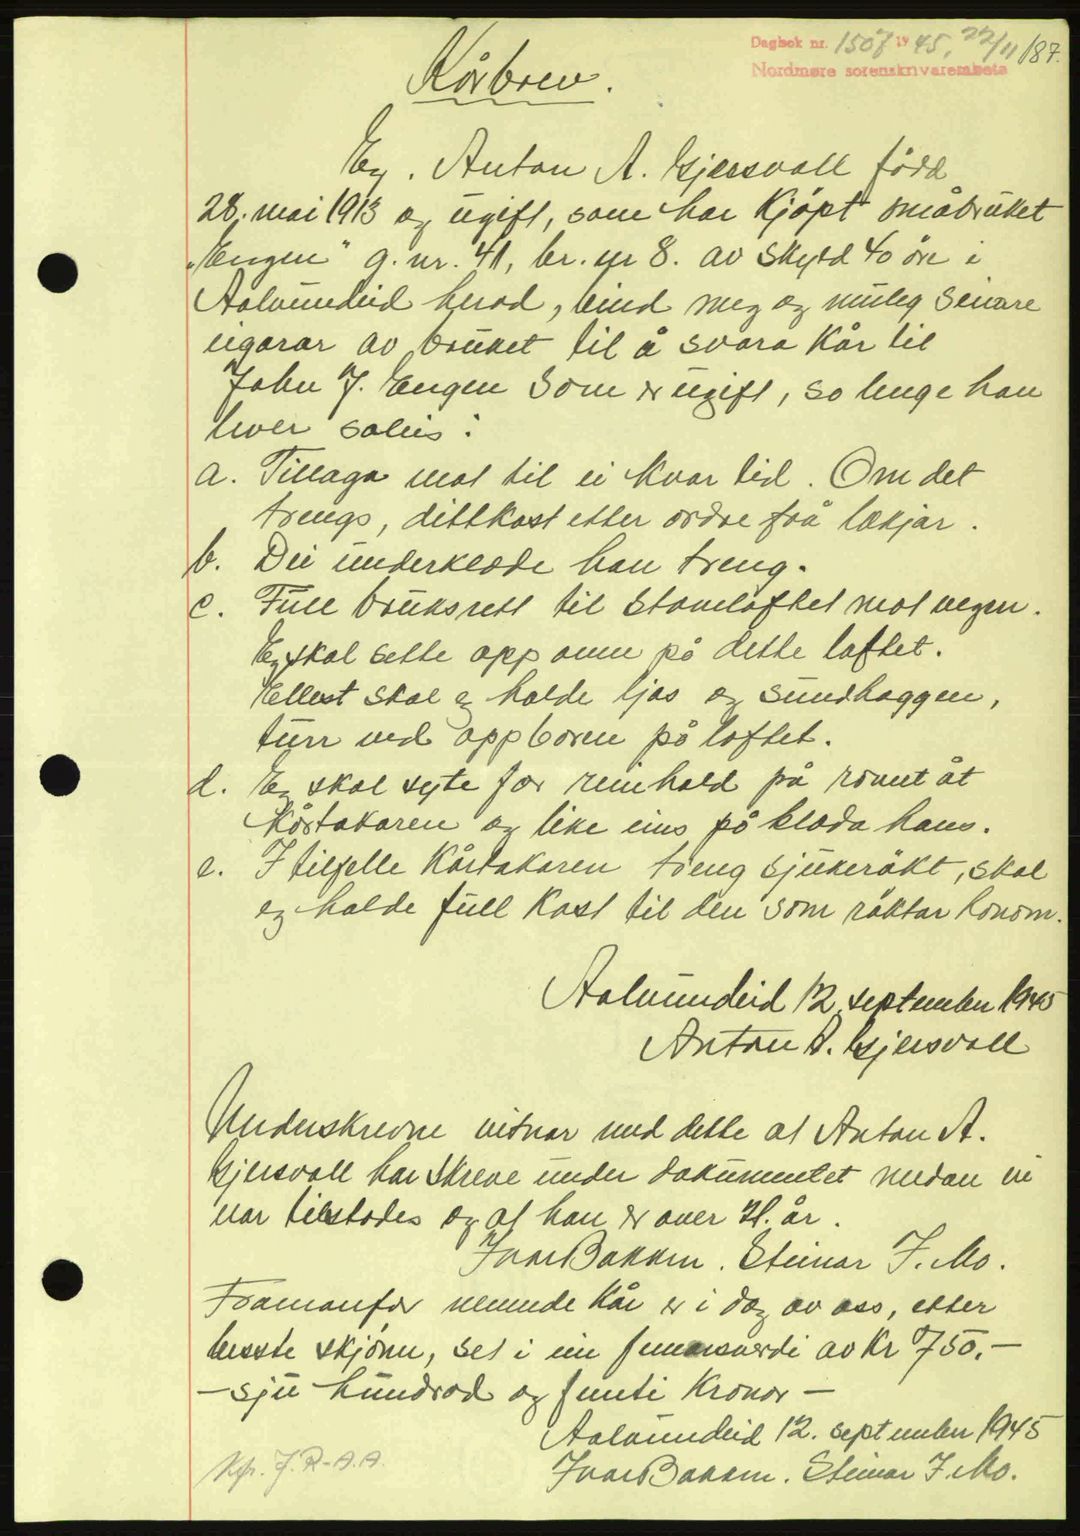 Dagbok nr. 1507 1945, 22/11 187.
Nordmøre sorenskrivarembete
Kårbrev.
Eg. Anton A. Gjersvoll född
28. mai 1913 og ugift, som har kjöpt småbruket
"Engen" g. nr. 41, br. nr 8. av skyld 40 öre i
Aalvundeid herad, bind meg og muleg seinare
eigarar av bruket til å svara kår til
John J. Engen som er ugift, so lenge han
lever soleis:
a. Tillaga mat til ei kvar tid. Om det
trengs, dittkost etter ordre frå lækjar.
b. Dei underklæde han treng.
c. Full bruksrett til stoveloftet mot vegen.
Eg skal sette opp omn på dette loftet.
Ellest skal eg halde ljos og sundhoggen,
turr ved oppboren på loftet.
d. Eg skal syte for reinhald på romet åt
kårtakaren og like eins på klæda hans.
e. I tilfelle kårtakaren treng sjukerökt, skal
eg halde full kost til den som röktar honom.
Aalvundeid 12. september 1945
Anton A. Gjersvoll
Underskrevne vitnar med dette at Anton A.
Gjersvoll har skreve under dokumentet medan vi
var tilstades og at han er over 21. år.
Ivar Bakken. Steinar J. Mo.
Framanfor nemnde kår er i dag av oss, etter
beste skjönn, set i ein femårsverdi av Kr 750.—
— sju hundrad og femti kronor —
Aalvundeid 12. september 1945
Ivar Bakken. Steinar J. Mo.
Kfr. J. R-A.A.